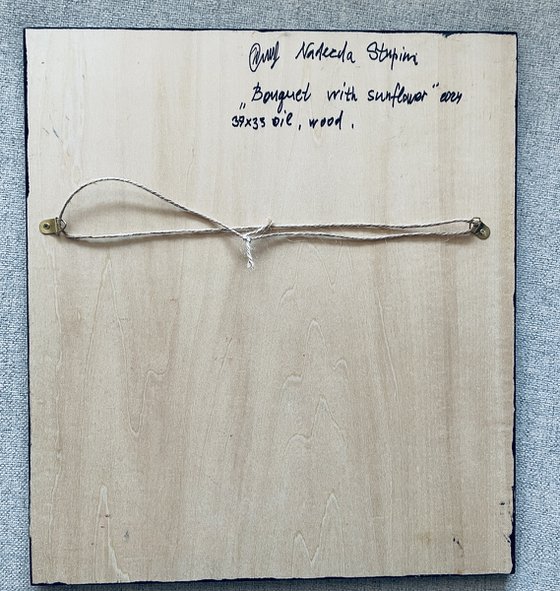 Nadezda Stupina
„Bouquet with sunflower" 2021
37x33 oil, wood.